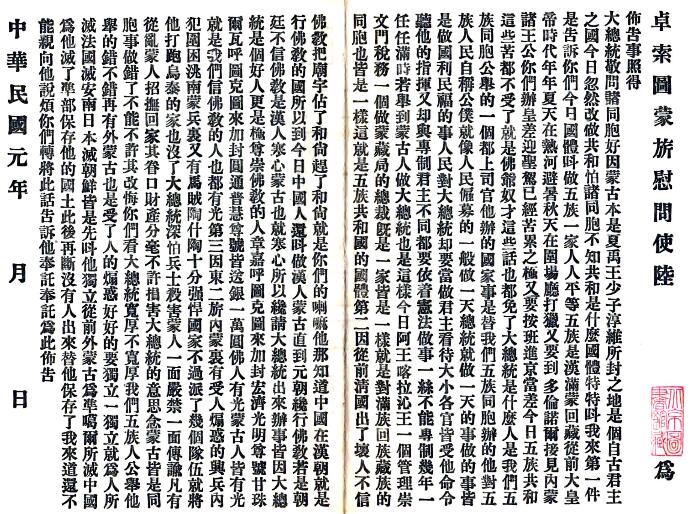 卓索圖蒙旂慰問使陸 為
佈告事照得
大總統敬問諸同胞好因蒙古本是夏禹王少子淳維所封之地是個自古君主
之國今日忽然改做共和怕諸同胞不知共和是什麼國體特特呌我來第一件
是告訴你們今日國體呌做五族一家人人平等五族是漢滿蒙回藏從前大皇
帝時代年年夏天在熱河避暑秋天在圍場廳打獵又要到多倫諾爾接見內蒙
諸王公你們辦皇差迎聖駕已經苦累之極又要按班進京當差今日五族共和
這些苦都不受了就是佛爺奴才這些話也都免了大總統是什麼人是我們五
族同胞公舉的一個都上司官他辦的國家事是替我們五族同胞辦的他對五
族人民自稱公僕就像人民僱募的一般做一天總統就做一天的事做的事皆
是做國利民福的事人民對大總統却要當做君主看待大小各官皆受他命令
聽他的指揮又却與專制君主不同都要依着憲法做事一絲不能專制幾年一
任任滿時若舉到蒙古人做大總統也是這樣今日阿王喀拉沁王一個管理崇
文門稅務一個做蒙藏局的總裁旣是一家皆是一樣就是對滿族回族藏族的
同胞也皆是一樣這就是五族共和國的國體第二因從前清國出了壞人不信
佛教把廟宇佔了和尚趕了和尚就是你們的喇嘛他那知道中國在漢朝就是
行佛教的國所以到今日中國人還呌做漢人蒙古直到元朝纔行佛教若是朝
廷不信佛教是漢人寒心蒙古也就寒心所以纔請大總統出來辦事皆因大總
統是個好人更是極尊崇佛教的人章嘉呼圖克圖來加封宏濟光明尊號甘珠
爾瓦呼圖克圖來加封圓通普慧尊號皆送銀一萬圓佛人有光蒙古人皆有光
就是我們信佛教的人也都有光第三因東二旂內蒙裏有受人煽惑的興兵內
犯圍困洮南蒙兵裏又有馬賊陶什陶十分强悍國家不過派了幾個隊伍就將
他打跑烏泰的家也沒了大總統深怕兵士殺害蒙人一面嚴禁一面傳諭凡有
從亂蒙人招撫回家其眷口財產分毫不許損害大總統的意思念蒙古皆是同
胞事做錯了不能不許其改悔你們看大總統寬厚不寬厚我們五族人公舉他
舉的錯不錯再有外蒙古也是受了人的煽惑好好的要獨立一獨立就為人所
滅法國滅安南日本滅朝鮮皆是先呌他獨立從前外蒙古為準噶爾所滅中國
為他滅了準部保存他的國土此後再斷沒有人出來替他保存了我來道還不
能親向他說煩你們轉將此話告訴他奉託奉託為此佈告
中華民國元年 月 日